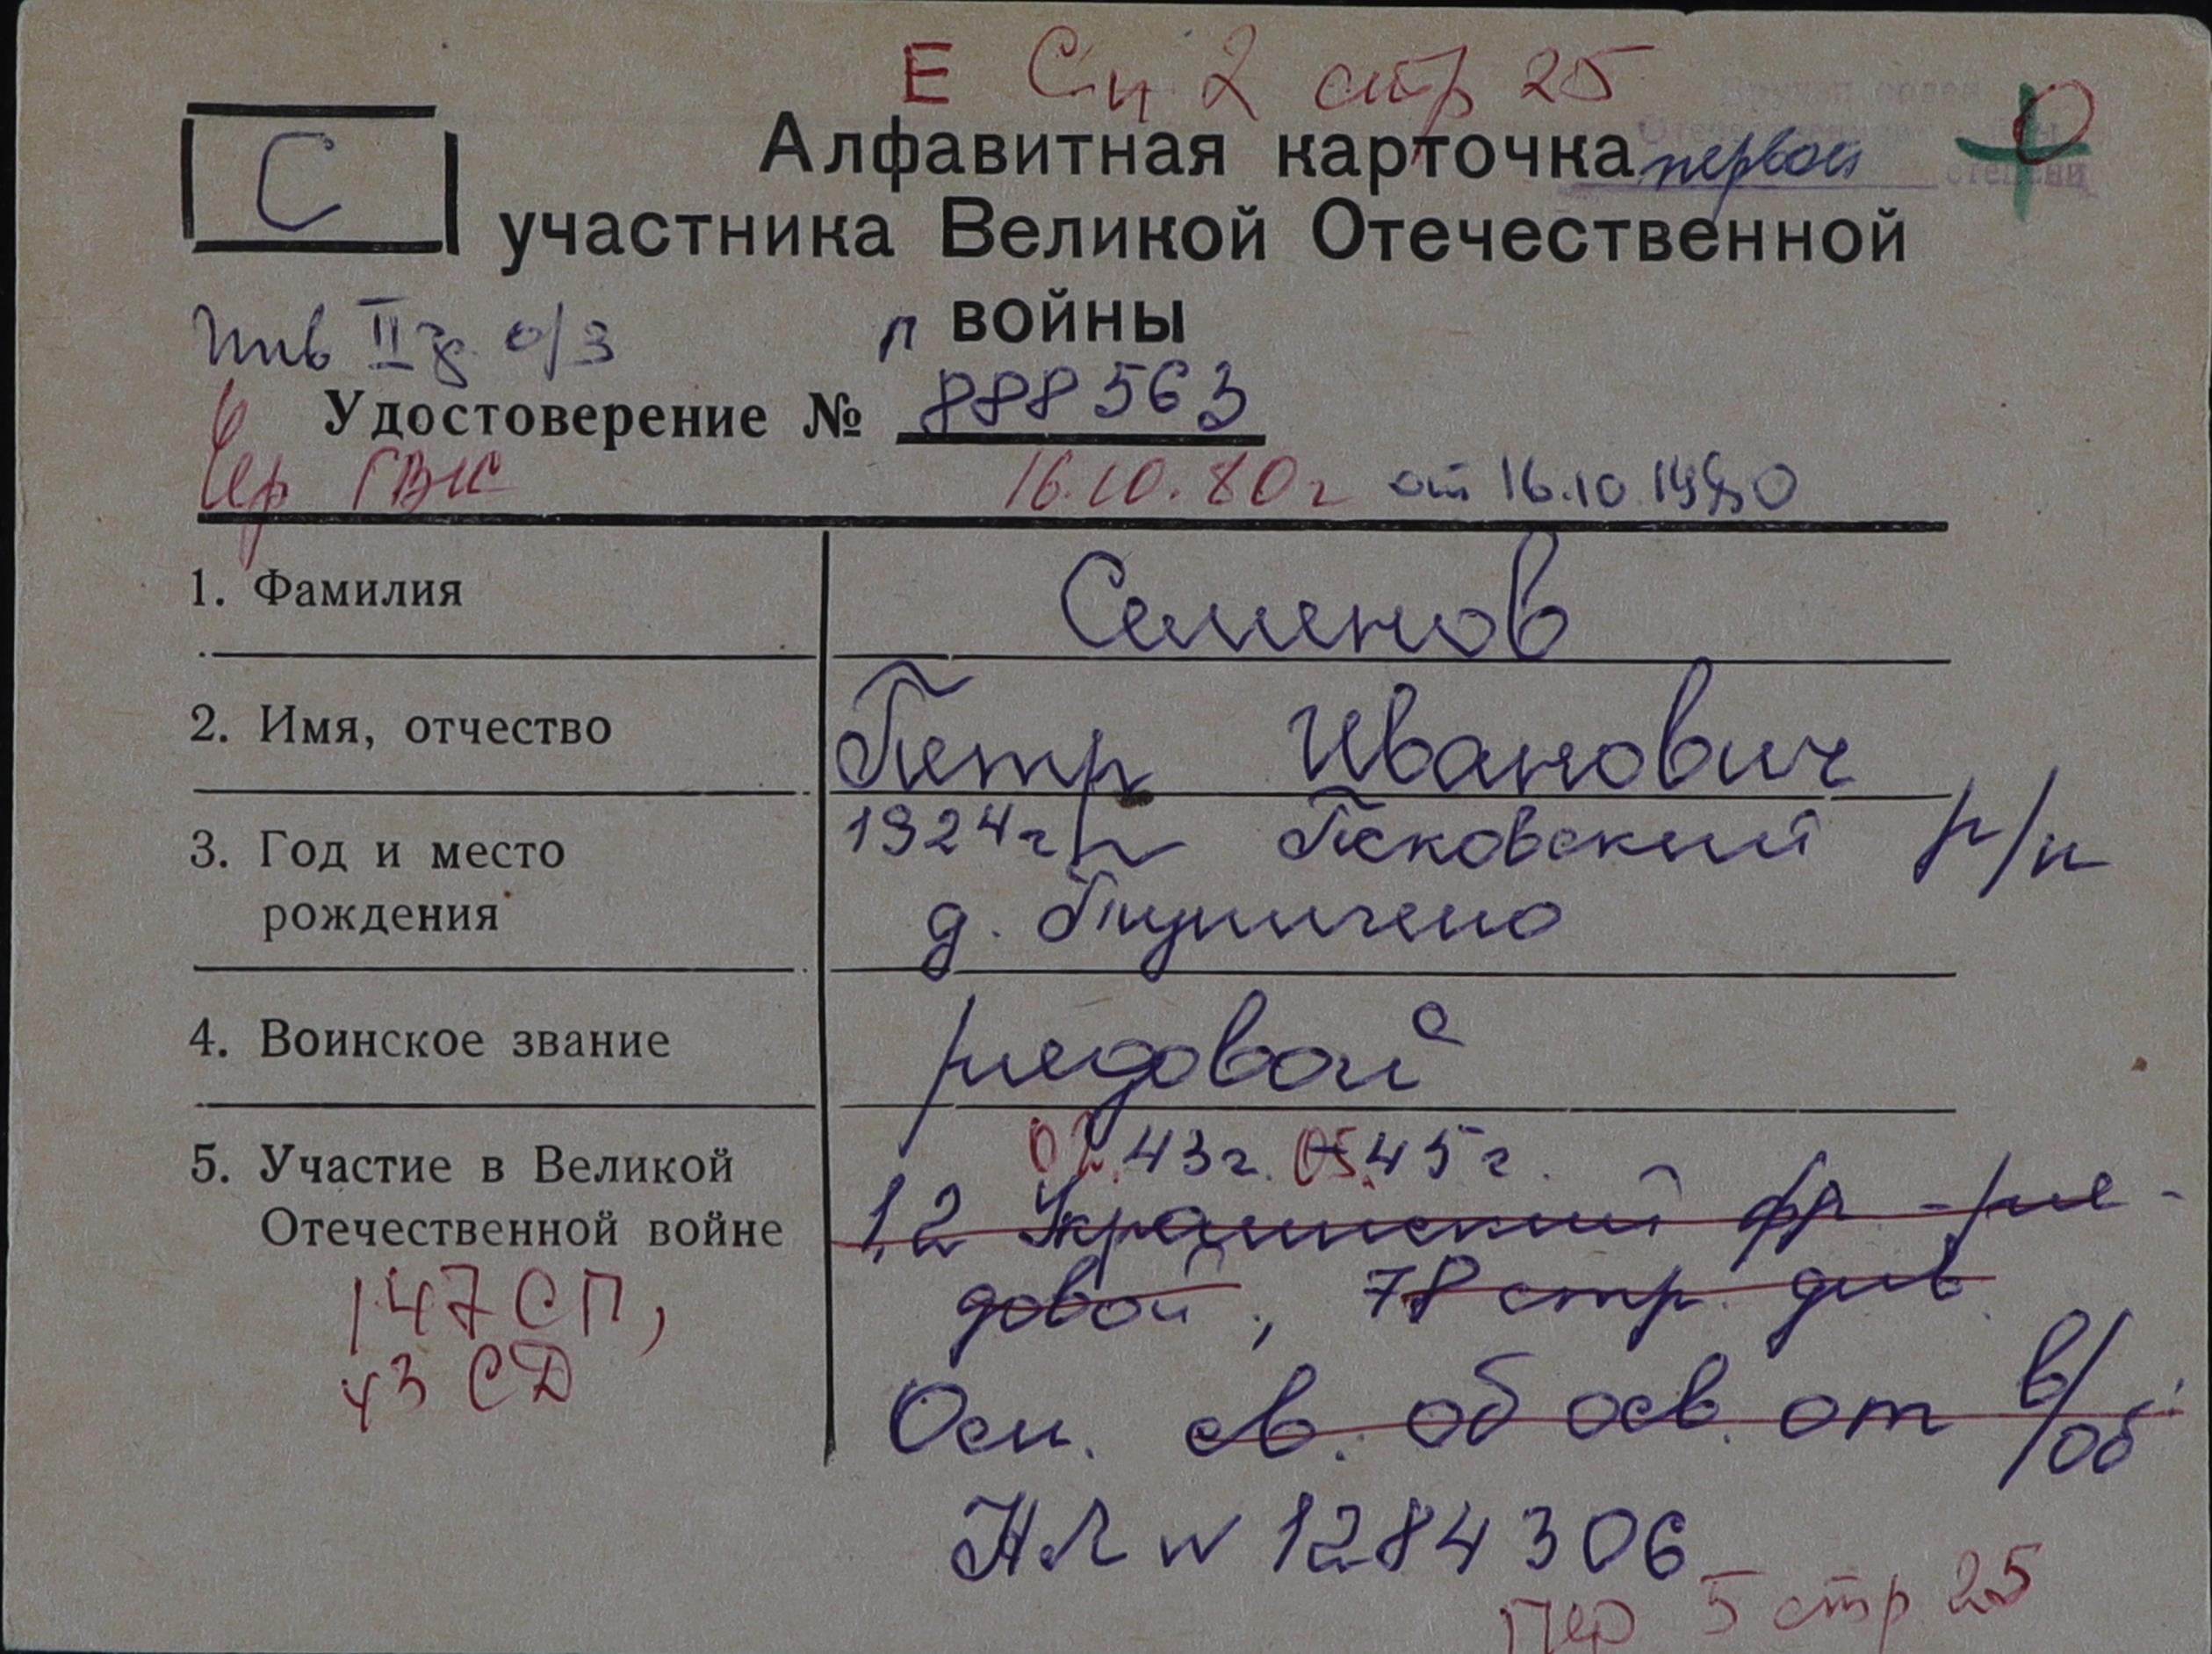 Е Сп 2 стр 25
Вручен орден
Отечественной войны
первой степени
С
Алфавитная карточка
участника Великой Отечественной
войны
инв II гр о/з
П
Удостоверение № 888563
ГВК 16.10.80г от 16.10.1980
1. Фамилия Семенов
2. Имя, отчество Петр Иванович
3. Год и место 1924г Псковский р/н
рождения д.
4. Воинское звание рядовой
02.43г. 05.45г.
5. Участие в Великой 1,2 Украинский фр - ря-
Отечественной войне довой, 78 стр. див
147 СП,
43 СД
Осн. св. об осв. от в/об
НЛ № 1284306
5 стр 25